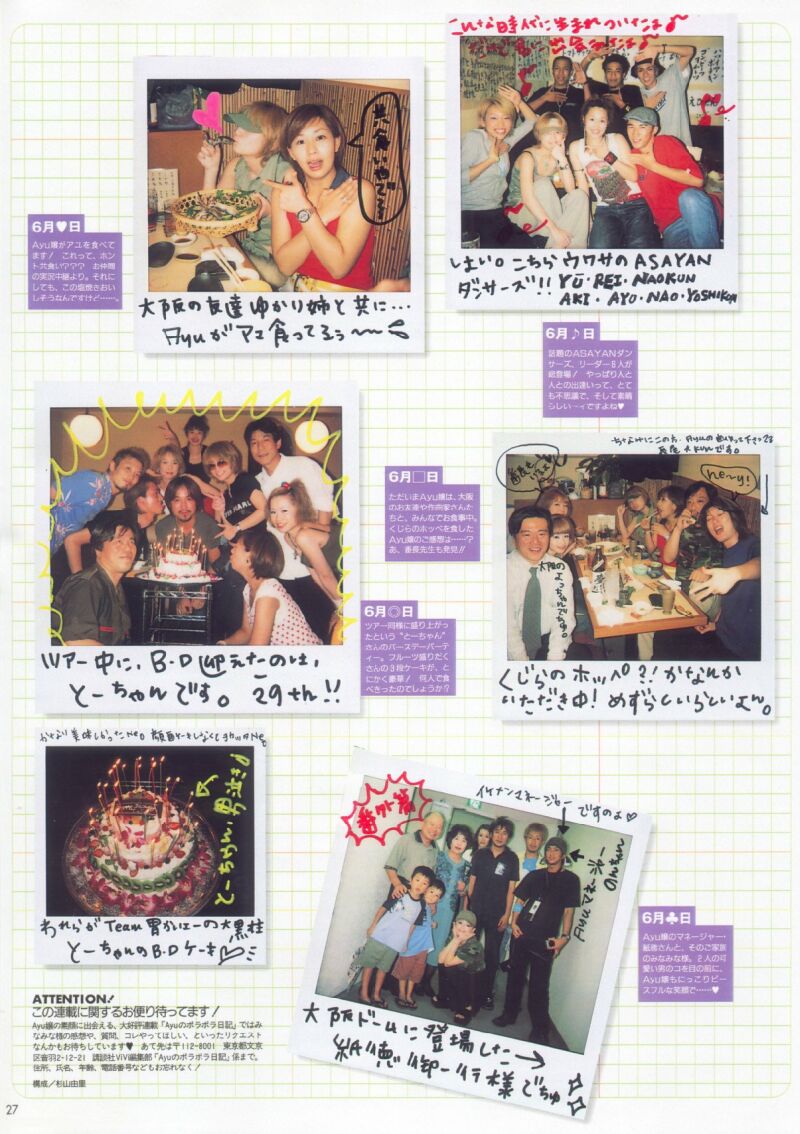 共食いやで〜
大阪の友達ゆかり姉と共に…
Ayuがアユ食ってるぅ〜〜
6月♥日
Ayu嬢がアユを食べて
ます! これって、ホン
ト共食い??? お仲間
の実況中継より。それに
しても、この塩焼きおい
しそうなんですけど……。
こんな時代に生まれついたよ♪
はい。こちらウワサのASAYAN
ダンサーズ!! YŪ・REI・NAOKUN
AKI・AYU・NAO・YOSHIKUN
6月♪日
話題のASAYANダン
サーズ、リーダー6人が
総登場! やっぱり人と
人との出逢いって、とて
も不思議で、そして素晴
らしい〜ィですよね♥
ツアー中に、B・D迎えたのは、
とーちゃんです。29さい!!
6月□日
ただいまAyu嬢は、大阪
のお友達や作曲家さんた
ちと、みんなでお食事中。
くじらのホッペを食した
Ayu嬢のご感想は……?
あ、番長先生も発見!!
6月◎日
ツアー同様に盛り上がっ
たという“とーちゃん”
さんのバースデーパーテ
ィー。フルーツ盛りだく
さんの3段ケーキが、と
にかく豪華! 何人で食
べきったのでしょうか?
ne〜y!
大阪の
よっちゃんでちゅ。
くじらのホッペ?!かなんか
いただき中!めずらしいらしいよん。
とーちゃん、男泣き♪
われらがTeam胃かいよーの大黒柱
とーちゃんのB・Dケーキ♡
番外篇
イケメンマネージャー
ですのよ♡
大阪ドームに登場した→
6月♣日
Ayu嬢のマネージャー・
紙徳さんと、そのご家族
のみなみな様。2人の可
愛い男のコを目の前に、
Ayu嬢もにっこりピー
スフルな笑顔で……♥
ATTENTION!
この連載に関するお便り待ってます!
Ayu嬢の素顔に出会える、大好評連載「Ayuのポラポラ日記」ではみ
なみな様の感想や、質問、コレやってほしい、といったリクエスト
なんかもお待ちしています♥ あて先は〒112-8001 東京都文京
区音羽2-12-21 講談社ViVi編集部「Ayuのポラポラ日記」係まで。
住所、氏名、年齢、電話番号などもお忘れなく!
構成/杉山由里
27